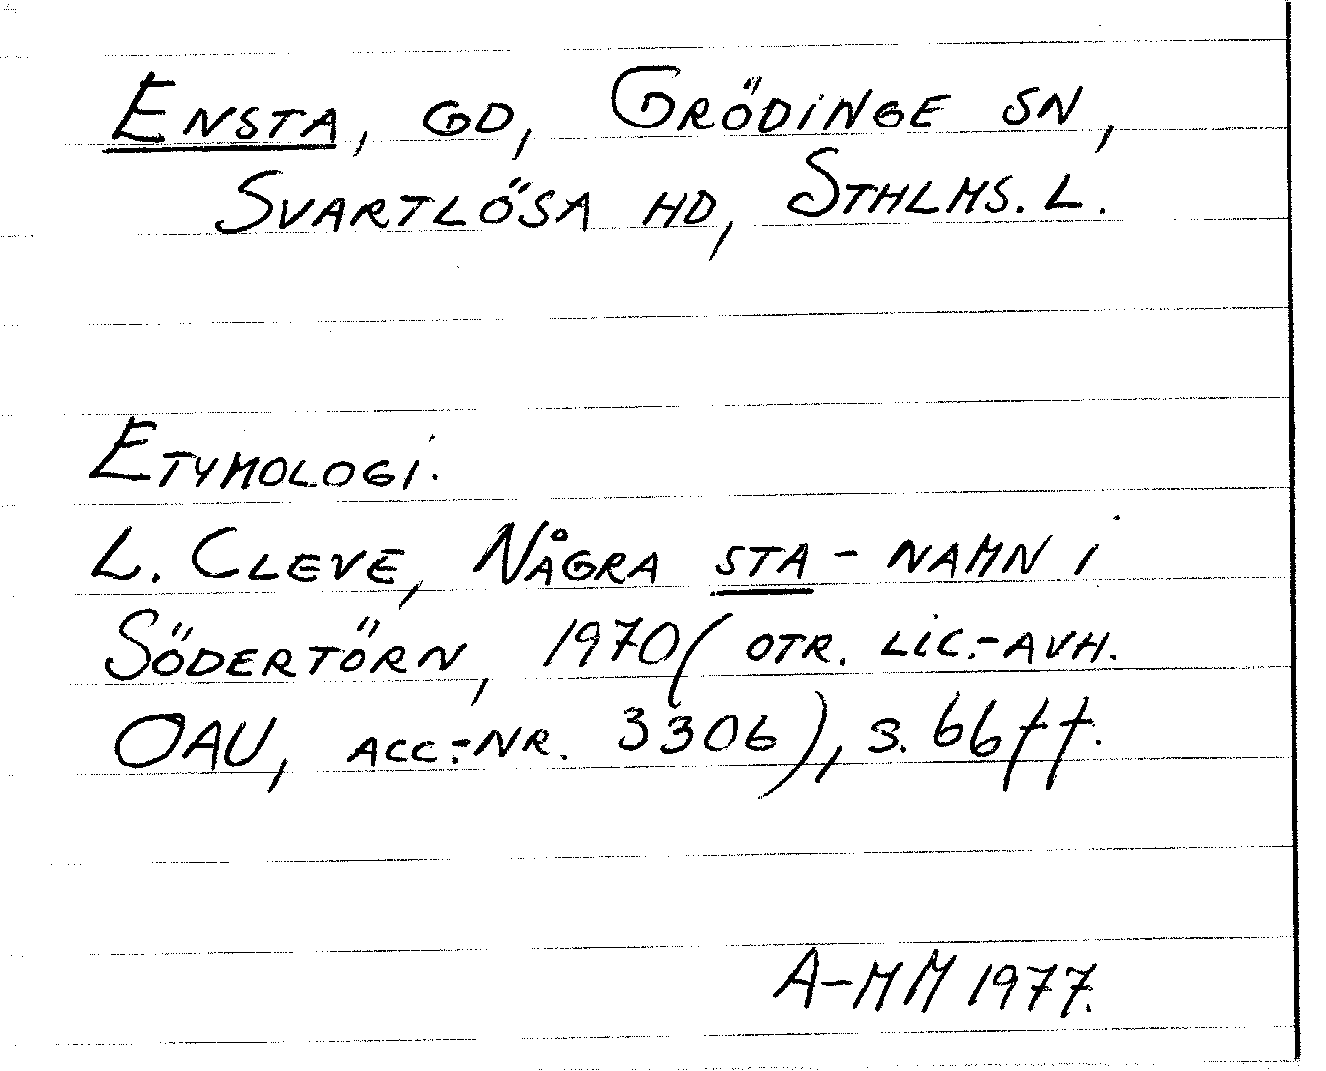 ENSTA, GD, GRÖDINGE SN,
SVARTLÖSA HD, STHLMS. L.
ETYMOLOGI.
L. CLEVE, NÅGRA STA-NAMN I
SÖDERTÖRN, 1970 (OTR. LIC.-AVH.
OAU, ACC.-NR. 3306), S. 66ff.
A-MM 1977.